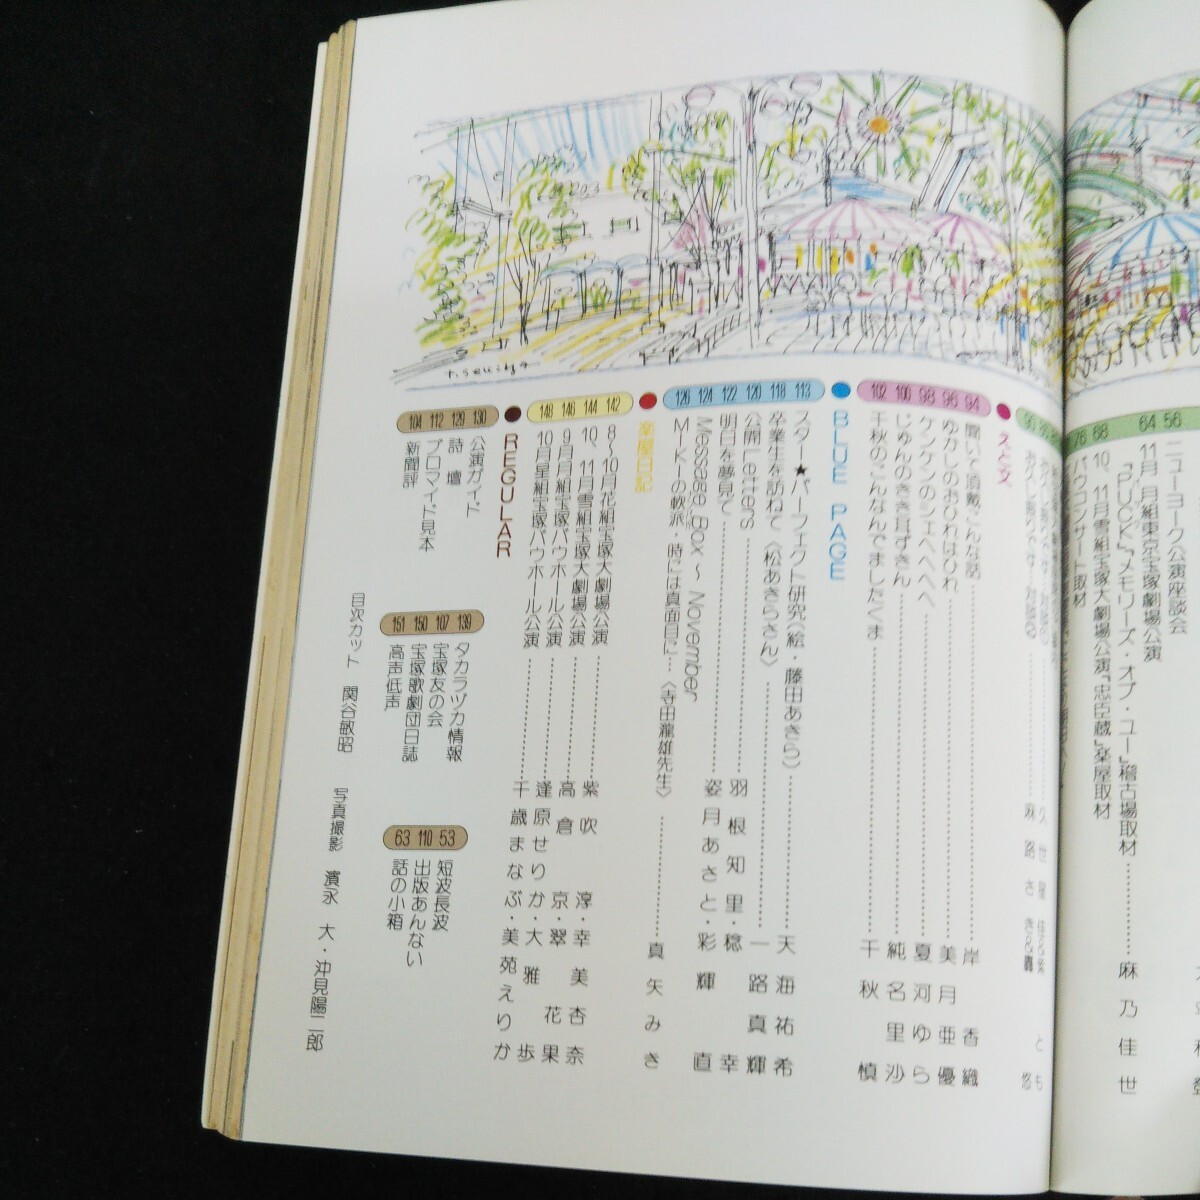 56 ニューヨーク公演座談会
64 11月 月組東京宝塚劇場公演
『PUCK』『メモリーズ・オブ・ユー』稽古場取材 麻乃佳世
68 10、11月雪組宝塚大劇場公演『忠臣蔵』楽屋取材
76 バウコンサート取材
えと文
94 聞いて頂戴こんな話 岸香織
96 ゆかしのおひれはひれ 美月亜優
98 ケンケンのシェヘヘヘヘ 夏河ゆら
100 じゅんのきき耳ずきん 純名里沙
102 千秋のこんなんでましたくま 千秋慎
BLUE PAGE
113 スター★パーフェクト研究〈絵・藤田あきら〉 天海祐希
118 卒業生を訪ねて〈松あきらさん〉 一路真輝
120 公開Letters 羽根知里・稔幸
122 明日を夢見て 姿月あさと・彩輝直
124 Message Box～November
126 MIーKIーの軟派、時には真面目に…〈寺田瀧雄先生〉 真矢みき
楽屋日記
142 8～10月花組宝塚大劇場公演 紫吹淳・幸美杏奈
144 10、11月雪組宝塚大劇場公演 高倉京・翠花果
146 9月月組宝塚バウホール公演 逢原せりか・大雅歩
148 10月星組宝塚バウホール公演 千歳まなぶ・美苑えりか
REGULAR
130 公演ガイド
129 詩壇
112 ブロマイド見本
104 新聞評
139 タカラヅカ情報
107 宝塚友の会
150 宝塚歌劇団日誌
151 高声低声
53 短波長波
110 出版あんない
63 話の小箱
目次カット 関谷敏昭 写真撮影 濱永 大・沖見陽二郎